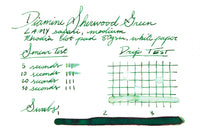 Diamine Sherwood Green
Lamy safari, medium
Rhodia dot pad 80gsm white paper
Smear Test
Drip Test
5 seconds
10 seconds
20 seconds
30 seconds
Swabs
1 2 3